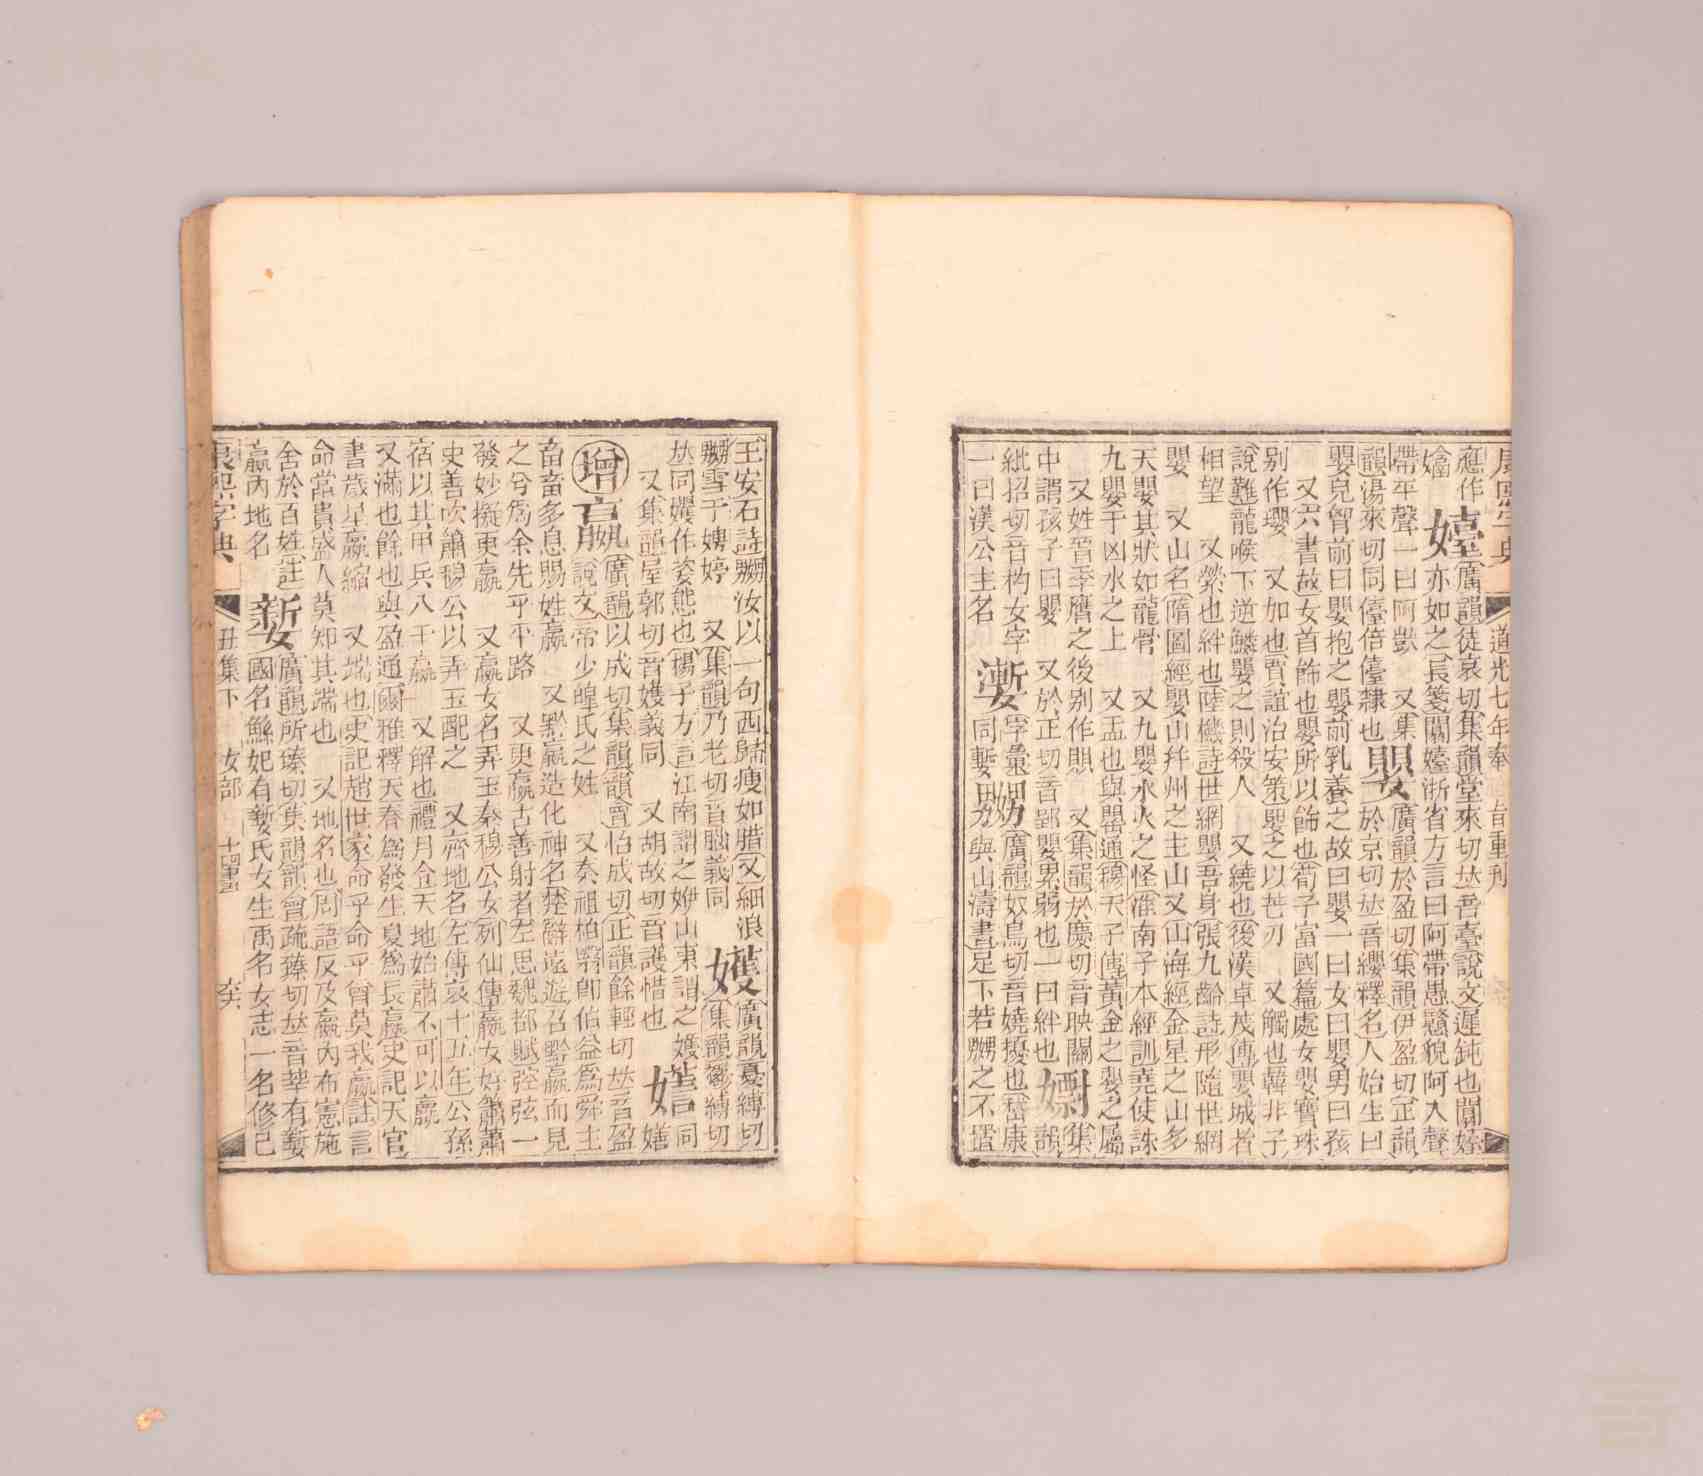 康熙字典 道光七年奉 旨重刊
應作
嬆
嬯
廣韻徒哀切集韻堂來切𠀤音臺說文遲鈍也闒嬯
亦如之長箋闒嬯浙省方言曰阿帶愚戇貌阿入聲
帶平聲一曰阿獃 又集
韻湯來切同儓倍儓隸也
嬰
廣韻於盈切集韻伊盈切正韻
於京切𠀤音纓釋名人始生曰
嬰兒胷前曰嬰抱之嬰前乳養之故曰嬰一曰女曰嬰男曰孩
又六書故女首飾也嬰所以飾也荀子富國篇處女嬰寶珠
别作瓔 又加也賈誼治安策嬰之以芒刃 又觸也韓非子
說難龍喉下逆鱗嬰之則殺人 又繞也後漢卓茂傳嬰城者
相望 又縈也絆也陸機詩世網嬰吾身張九齡詩形隨世網
嬰 又山名隋圖經嬰山幷州之主山又山海經金星之山多
天嬰其狀如龍骨 又九嬰水火之怪淮南子本經訓堯使誅
九嬰于凶水之上 又盂也與罌通穆天子傳黃金之嬰之屬
又姓晉季膺之後别作䙬 又集韻於慶切音映關
中謂孩子曰嬰 又於正切音郢嬰累弱也一曰絆也
嬼
韻集
紕招切音杓女字
一曰漢公主名
㜞
字彙
同蹔
嬲
廣韻奴鳥切音嬈擾也嵆康
與山濤書足下若嬲之不置
王安石詩嬲汝以一句西歸瘦如腊又細浪
嬲雪于娉婷 又集韻乃老切音腦義同
嬳
廣韻憂縛切
集韻鬱縛切
𠀤同孇作姿態也揚子方言江南謂之㛹山東謂之嬳
又集韻屋郭切音嬳義同 又胡故切音護惜也
嬗
同
嬗
增
嬴
廣韻以成切集韻韻會怡成切正韻餘輕切𠀤音盈
說文帝少皥氏之姓 又秦祖柏翳卽伯益爲舜主
畜畜多息賜姓嬴 又黔嬴造化神名楚辭遠遊召黔嬴而見
之兮爲余先乎平路 又更嬴古善射者左思魏都賦控弦一
發妙擬更嬴 又嬴女名弄玉秦穆公女列仙傳嬴女好簫蕭
史善吹簫穆公以弄玉配之 又齊地名左傳哀十五年公孫
宿以其甲兵入于嬴 又解也禮月令天地始肅不可以嬴
又滿也餘也與盈通爾雅釋天春爲發生夏爲長嬴史記天官
書歲星嬴縮 又端也史記趙世家命乎命乎曾莫我嬴註言
命常貴盛人莫知其端也 又地名也周語反及嬴內布憲施
舍於百姓註
嬴內地名
㜪
廣韻所臻切集韻韻會疏臻切𠀤音莘有㜪
國名鯀妃有㜪氏女生禹名女志一名修己
康熙字典 丑集下 女部 十四畫